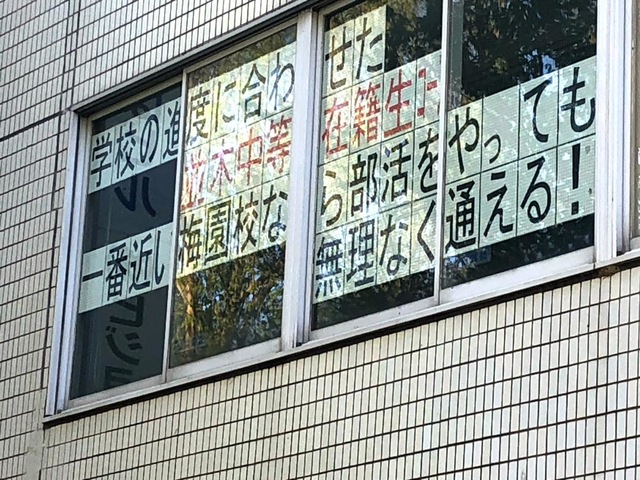 学校の進度に合わせた
並木中等在籍生に
一番近い梅園校なら部活をやっても
無理なく通える!